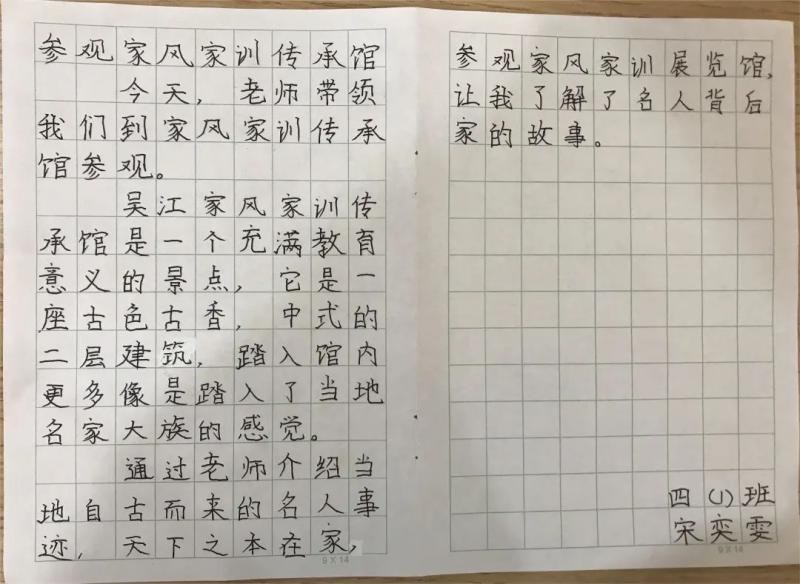 参观家风家训传承馆
今天，老师带领
我们到家风家训传承
馆参观。
吴江家风家训传
承馆是一个充满教育
意义的景点，它是一
座古色古香，中式的
二层建筑，踏入馆内
更多像是踏入了当地
名家大族的感觉。
通过老师介绍当
地自古而来的名人事
迹，天下之本在家，
9×14
参观家风家训展览馆，
让我了解了名人背后
家的故事。
四(1)班
宋奕雯
9×14